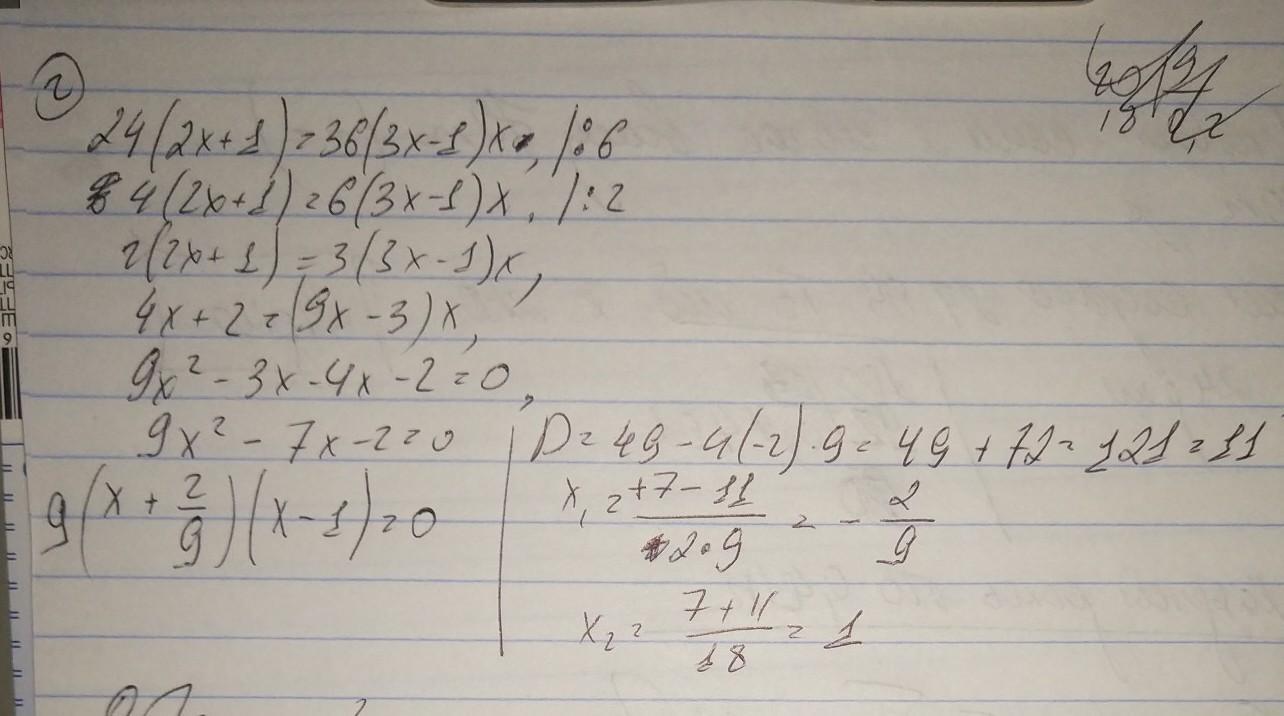 г
24(2x+1)=36(3x-1)x, |:6
4(2x+1)=6(3x-1)x, |:2
2(2x+1)=3(3x-1)x,
4x+2=(9x-3)x,
9x²-3x-4x-2=0,
9x²-7x-2=0
9(x+2/9)(x-1)=0
D=49-4(-2)·9=49+72=121=11
x₁=+7-11/2·9=-2/9
x₂=7+11/18=1